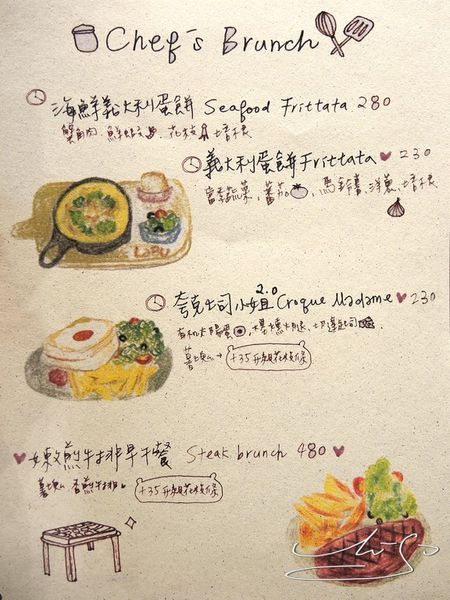 Chef's Brunch
海鮮義大利蛋餅 Seafood Frittata 280
蟹角肉 鮮蝦 花枝 培根
義大利蛋餅 Frittata 230
當季蔬菜、蕃茄、馬鈴薯、洋蔥、培根
夸克吐司小姐 2.0 Croque Madame 230
有機太陽蛋、煙燻火腿、切達起司
薯塊 → +35升級花枝條
嫩煎牛排早午餐 Steak brunch 480
薯塊 香煎牛排 +35升級花枝條